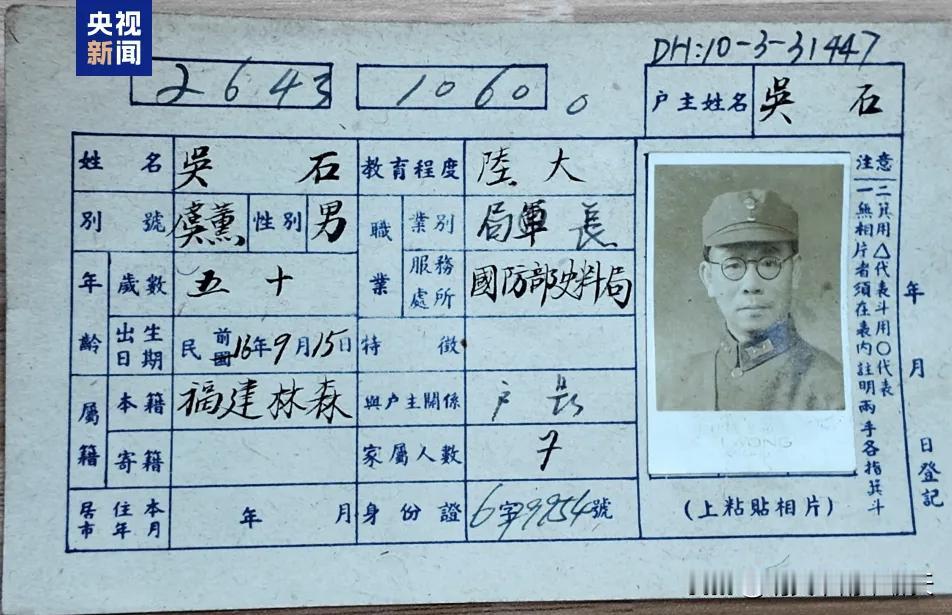 央视
新闻
DH:10-3-31447
2643
1060
0
户主姓名 吳石
姓名 吳石 教育程度 陸大
別號 虞薰 性別 男 職業 業別 局軍長
年齡 歲數 五十 服務處所 國防部史料局
出生日期 民前國16年9月15日 特徵
屬籍 本籍 福建林森 與户主關係 户長
寄籍 家屬人數 7
居住本市年月 年 月 身份證 6字9954號
注意
一無相片者須在表內註明兩手各指箕斗
二箕用△代表斗用〇代表
(上粘貼相片)
年 月 日登記